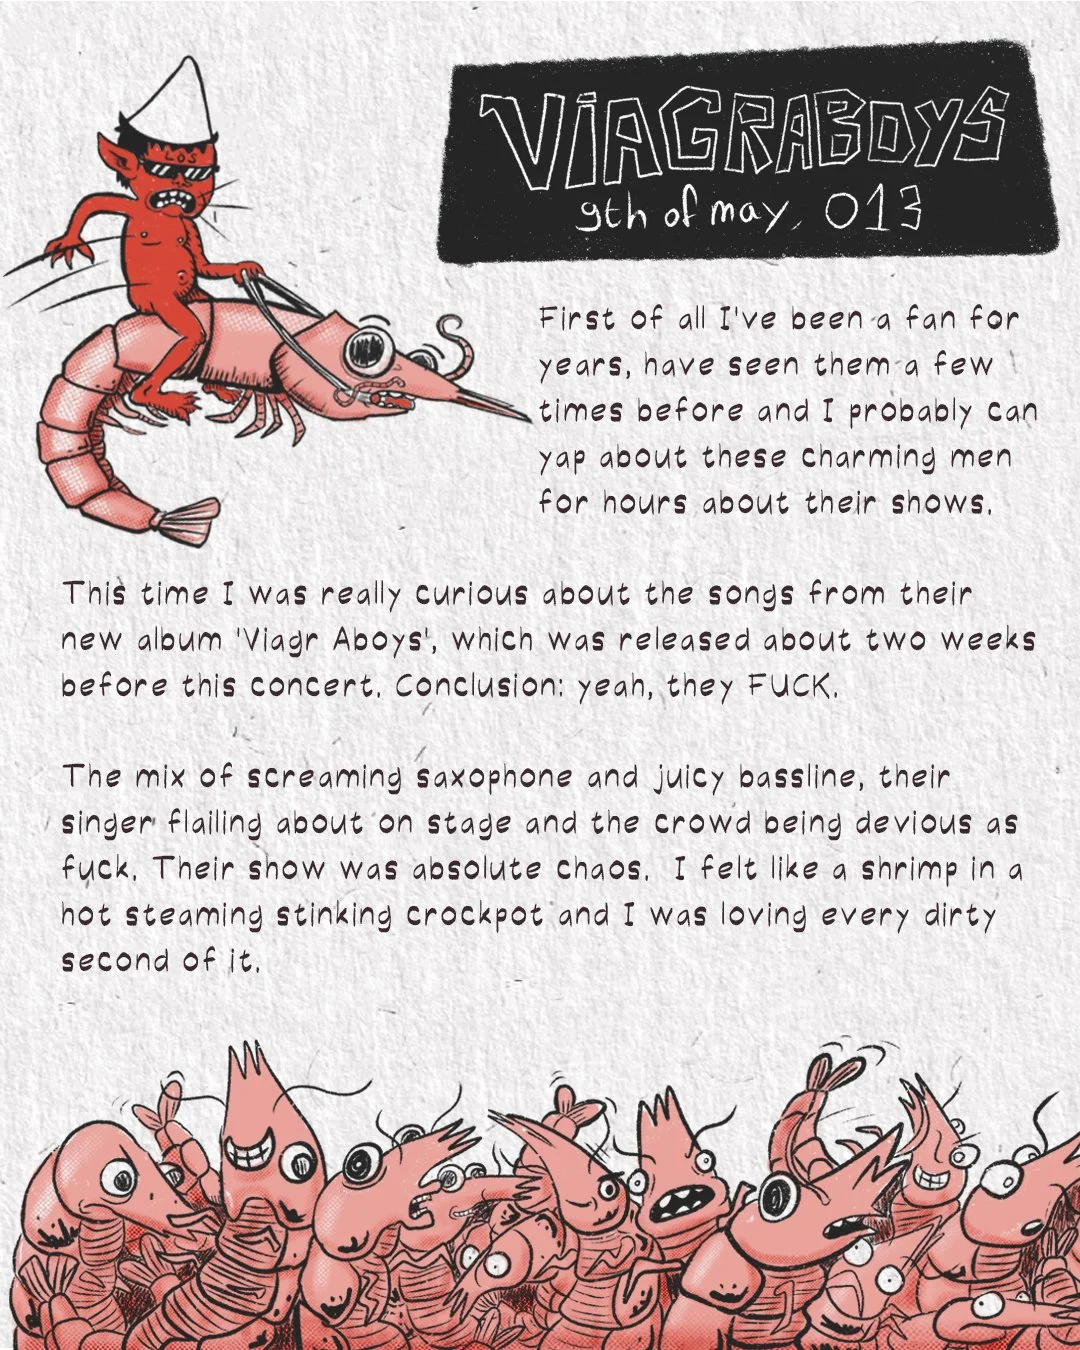 LOS
VIAGRABOYS
9th of may, 013
First of all I've been a fan for
years, have seen them a few
times before and I probably can
yap about these charming men
for hours about their shows.
This time I was really curious about the songs from their
new album 'Viagr Aboys', which was released about two weeks
before this concert. Conclusion: yeah, they FUCK.
The mix of screaming saxophone and juicy bassline, their
singer flailing about on stage and the crowd being devious as
fuck. Their show was absolute chaos. I felt like a shrimp in a
hot steaming stinking crockpot and I was loving every dirty
second of it.